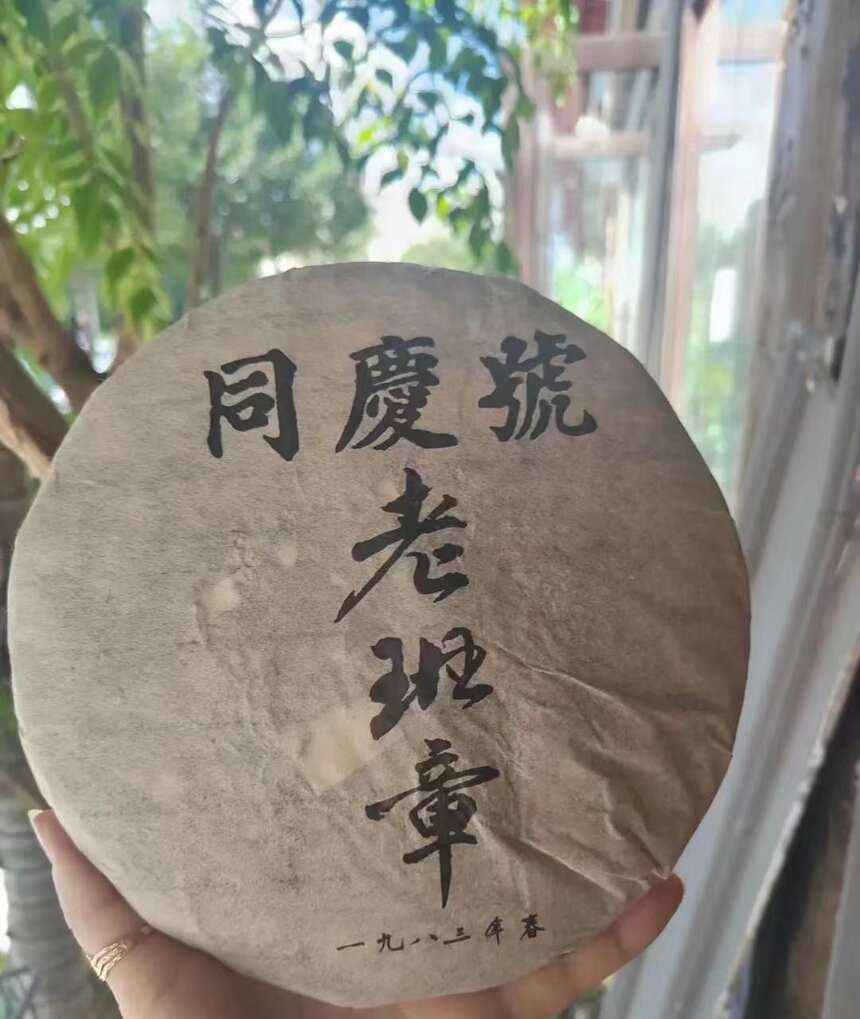 同慶號
老班章
一九八三年春